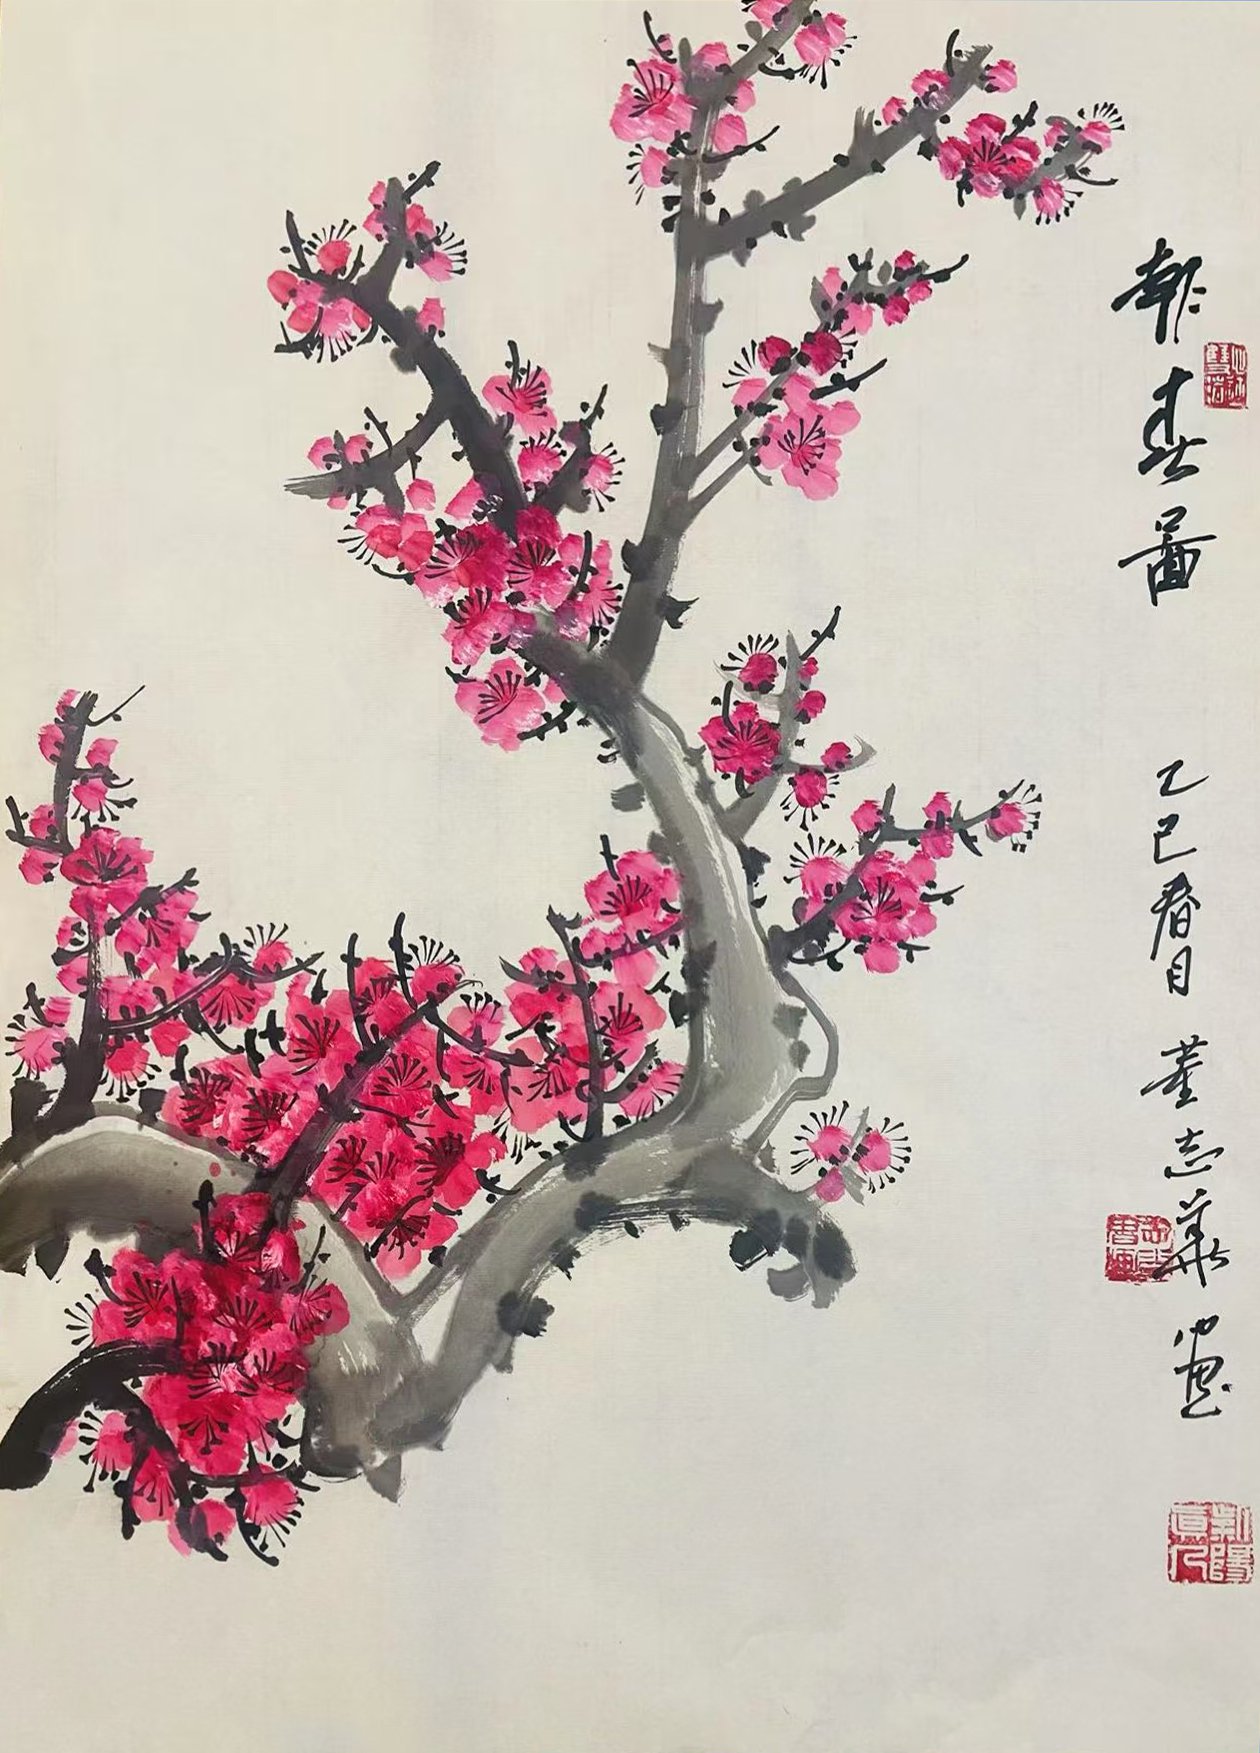 報春圖 乙巳春月 董志華畫